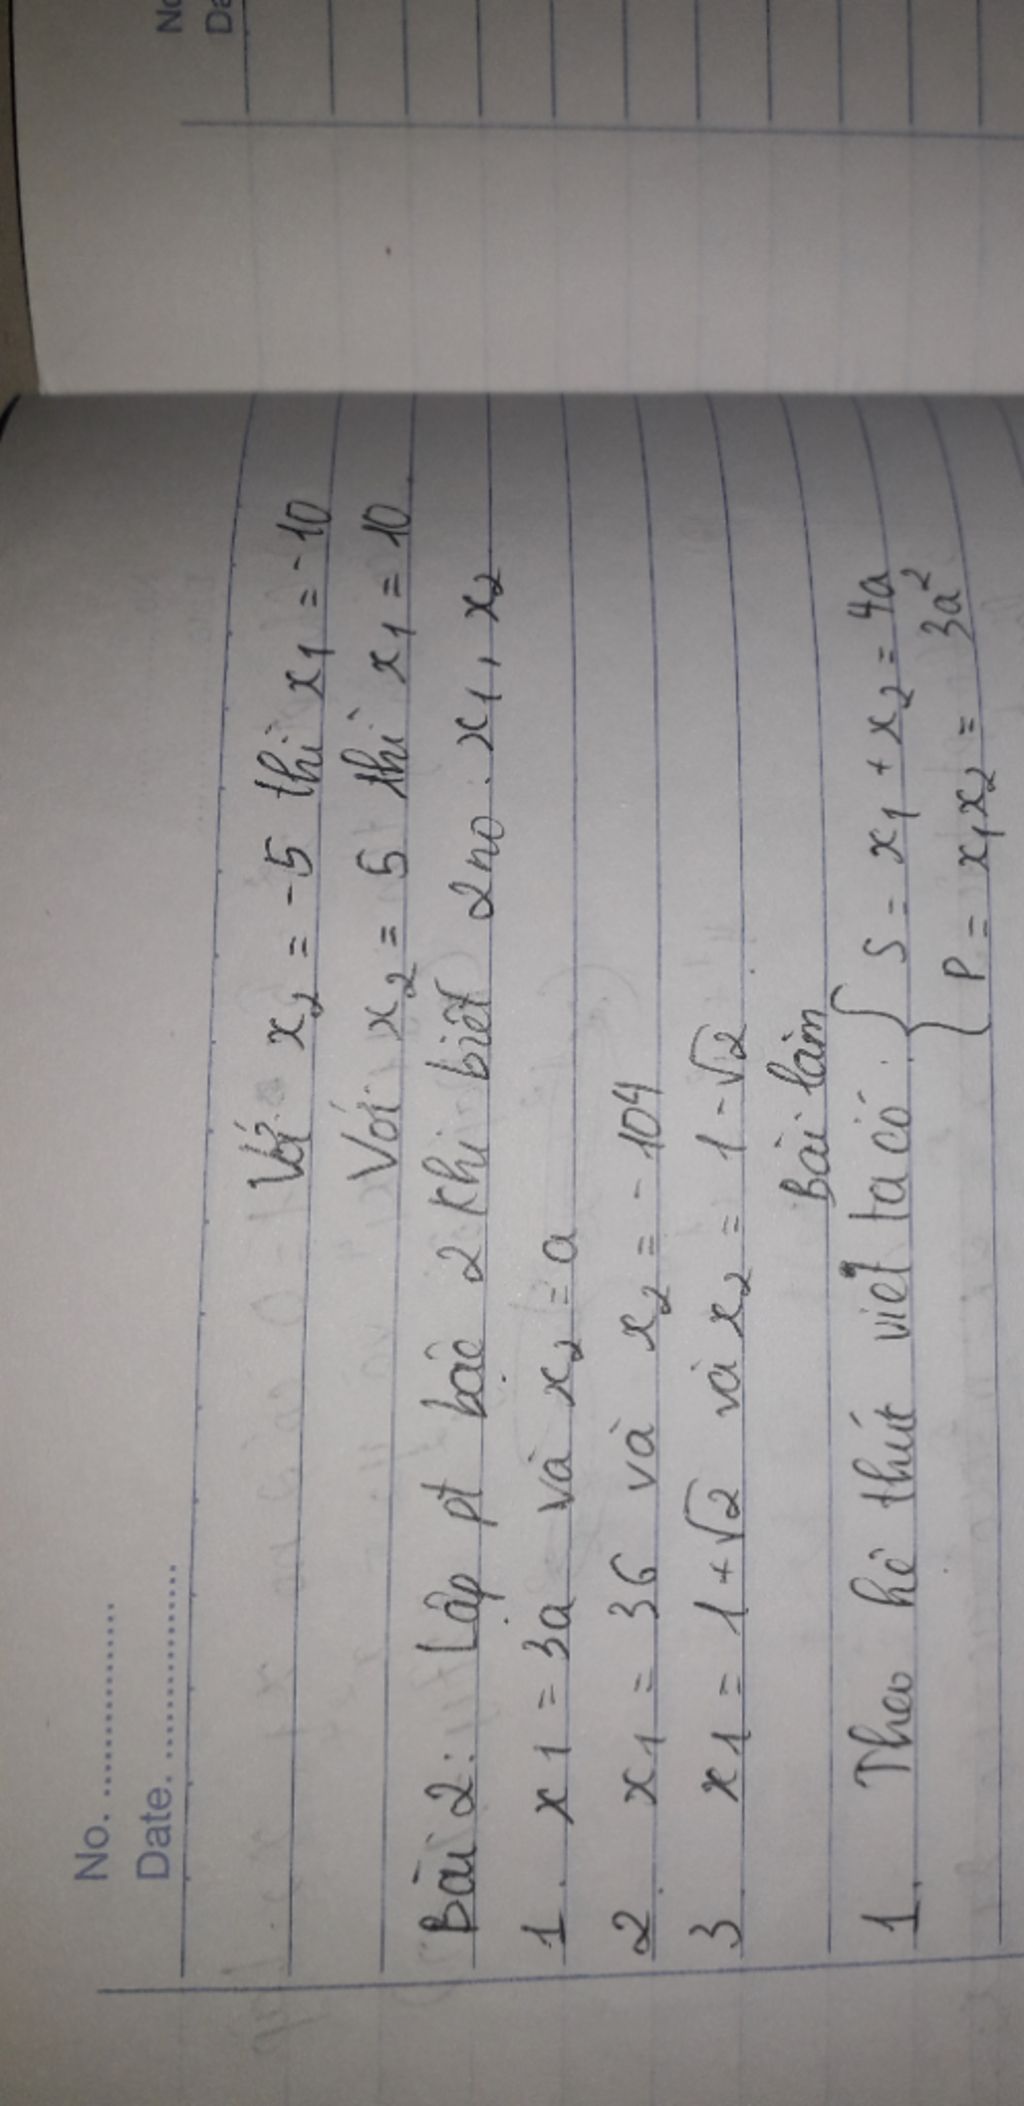 No.
Date.
Với x₂ = -5 thì x₁ = -10
Với x₂ = 5 thì x₁ = 10
Bài 2: Lập pt bậc 2 khi biết 2 no. x₁, x₂
1. x₁ = 3a và x₂ = a
2. x₁ = 36 và x₂ = -104
3 x₁ = 1+√2 và x₂ = 1-√2
Bài làm
1. Theo hệ thức viét ta có: { S = x₁ + x₂ = 4a
P = x₁x₂ = 3a²
No
Da